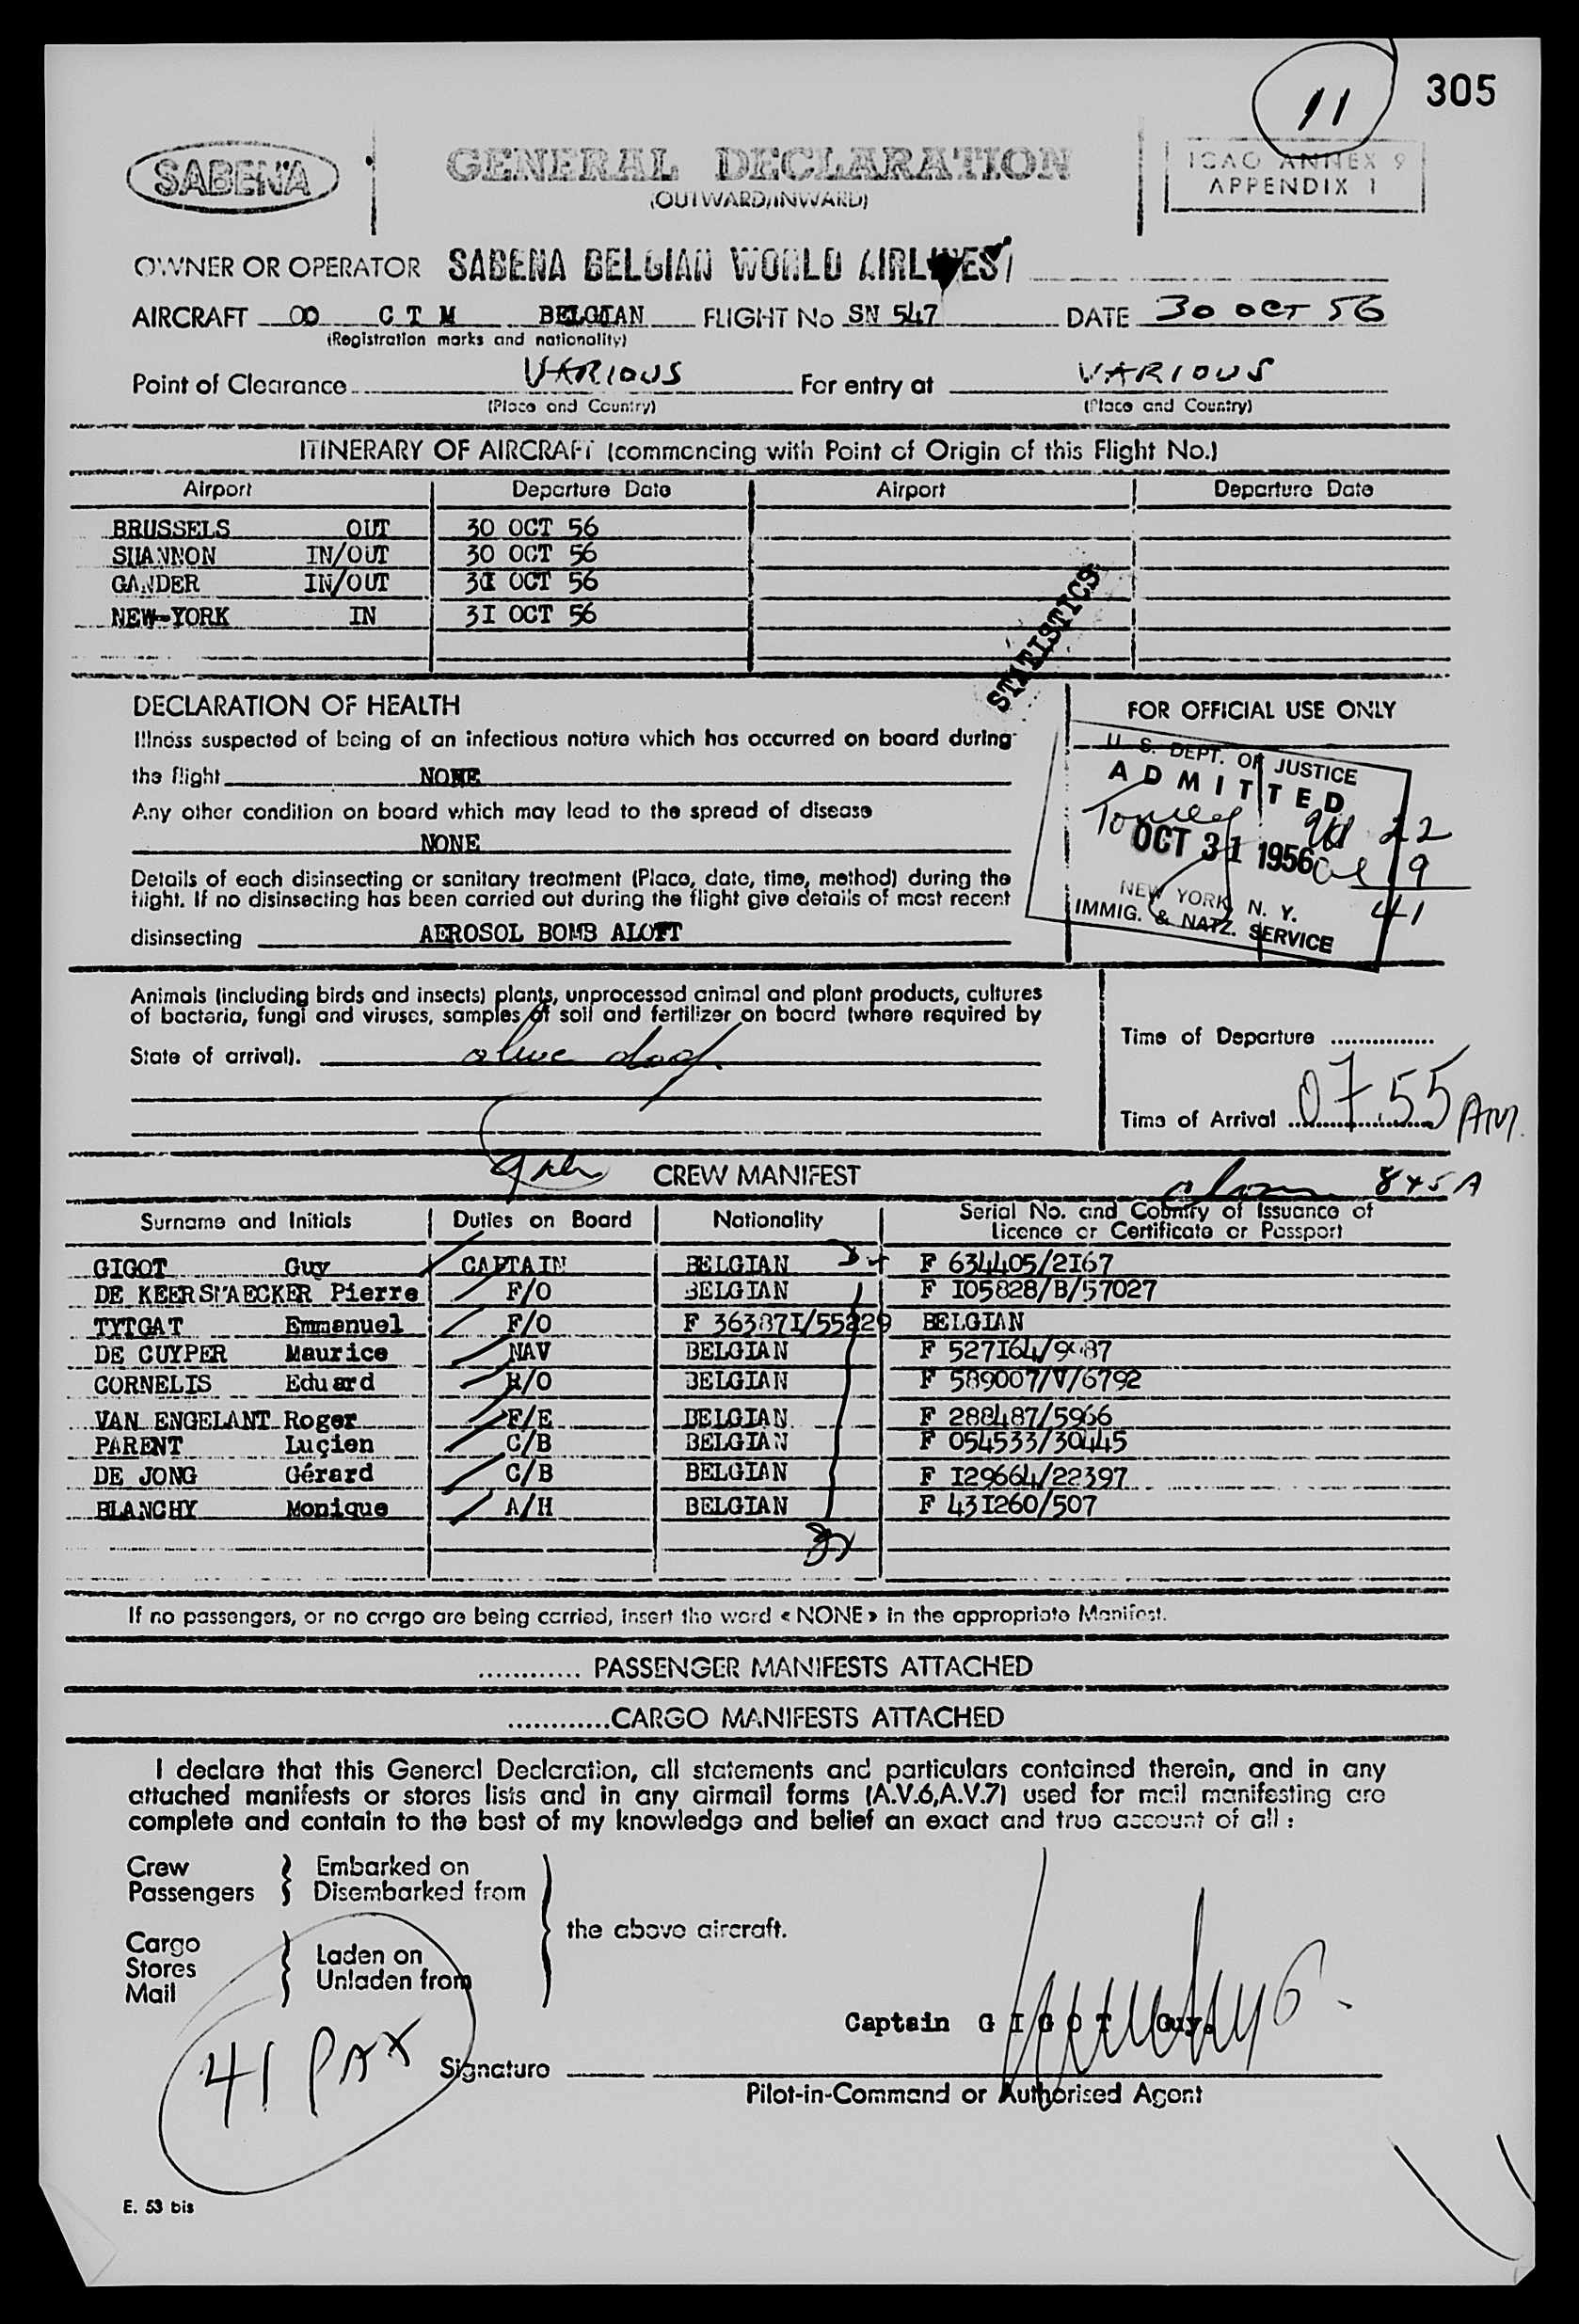 11
305
SABENA
GENERAL DECLARATION
(OUTWARD/INWARD)
ICAO ANNEX 9
APPENDIX 1
OWNER OR OPERATOR SABENA BELGIAN WORLD AIRLINES
AIRCRAFT OO C T M BELGIAN FLIGHT No SN 547 DATE 30 OCT 56
(Registration marks and nationality)
Point of Clearance VARIOUS For entry at VARIOUS
(Place and Country) (Place and Country)
ITINERARY OF AIRCRAFT (commencing with Point of Origin of this Flight No.)
Airport Departure Date Airport Departure Date
BRUSSELS OUT 30 OCT 56
SHANNON IN/OUT 30 OCT 56
GANDER IN/OUT OCT 56
NEW-YORK IN 3I OCT 56
STATISTICS
DECLARATION OF HEALTH
FOR OFFICIAL USE ONLY
Illness suspected of being of an infectious nature which has occurred on board during
the flight NONE
Any other condition on board which may lead to the spread of disease
NONE
Details of each disinsecting or sanitary treatment (Place, date, time, method) during the
flight. If no disinsecting has been carried out during the flight give details of most recent
disinsecting AEROSOL BOMB ALOFT
U. S. DEPT. OF JUSTICE
ADMITTED
22
OCT 31 1956
19
NEW YORK, N. Y.
41
IMMIG. & NATZ. SERVICE
Animals (including birds and insects) plants, unprocessed animal and plant products, cultures
of bacteria, fungi and viruses, samples of soil and fertilizer on board (where required by
State of arrival). alive dog.
Time of Departure ...............
Time of Arrival 07.55 AM.
CREW MANIFEST
845 A
Surname and Initials Duties on Board Nationality Serial No. and Country of Issuance of
Licence or Certificate or Passport
GIGOT Guy CAPTAIN BELGIAN F 634405/2I67
DE KEERSMAECKER Pierre F/O BELGIAN F I05828/B/57027
TYTGAT Emmanuel F/O F 36387I/55229 BELGIAN
DE CUYPER Maurice NAV BELGIAN F 527I64/
CORNELIS Eduard R/O BELGIAN F 589007/V/6792
VAN ENGELANT Roger F/E BELGIAN F 288487/5966
PARENT Luçien C/B BELGIAN F 054533/30445
DE JONG Gérard C/B BELGIAN F I29664/22397
BLANCHY Monique A/H BELGIAN F 43I260/507
If no passengers, or no cargo are being carried, insert the word « NONE » in the appropriate Manifest.
............ PASSENGER MANIFESTS ATTACHED
............CARGO MANIFESTS ATTACHED
I declare that this General Declaration, all statements and particulars contained therein, and in any
attached manifests or stores lists and in any airmail forms (A.V.6,A.V.7) used for mail manifesting are
complete and contain to the best of my knowledge and belief an exact and true account of all :
Crew Embarked on
Passengers Disembarked from
the above aircraft.
Cargo
Stores Laden on
Mail Unladen from
Captain G I G O T Guy.
41 PAX
Signature
Pilot-in-Command or Authorised Agent
E. 53 bis